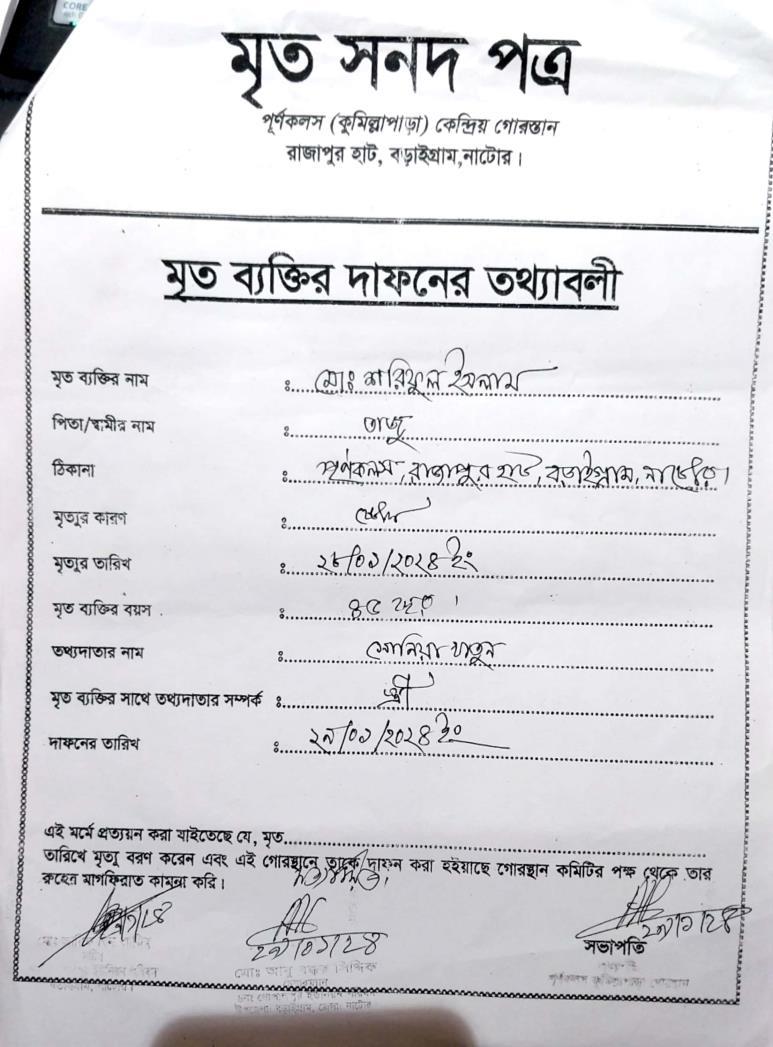 CORE
মৃত সনদ পত্র
পূর্ণকলস (কুমিল্লাপাড়া) কেন্দ্রিয় গোরস্তান
রাজাপুর হাট, বড়াইগ্রাম,নাটোর।
মৃত ব্যক্তির দাফনের তথ্যাবলী
মৃত ব্যক্তির নাম : মোঃ শরিফুল ইসলাম
পিতা/স্বামীর নাম : তাজু
ঠিকানা : পূর্ণকলস, রাজাপুর হাট, বড়াইগ্রাম, নাটোর।
মৃত্যুর কারণ :
মৃত্যুর তারিখ : ২৮/০১/২০২৪ ইং
মৃত ব্যক্তির বয়স : ৪৫ বছর।
তথ্যদাতার নাম : সোনিয়া খাতুন
মৃত ব্যক্তির সাথে তথ্যদাতার সম্পর্ক : স্ত্রী
দাফনের তারিখ : ২৯/০১/২০২৪ ইং
এই মর্মে প্রত্যয়ন করা যাইতেছে যে, মৃত
তারিখে মৃত্যু বরণ করেন এবং এই গোরস্থানে তাকে দাফন করা হইয়াছে গোরস্থান কমিটির পক্ষ থেকে তার
রুহের মাগফিরাত কামনা করি।
২৯/০১/২৪
২৯/১/২৪
সভাপতি
মোঃ আবু বক্কর সিদ্দিক